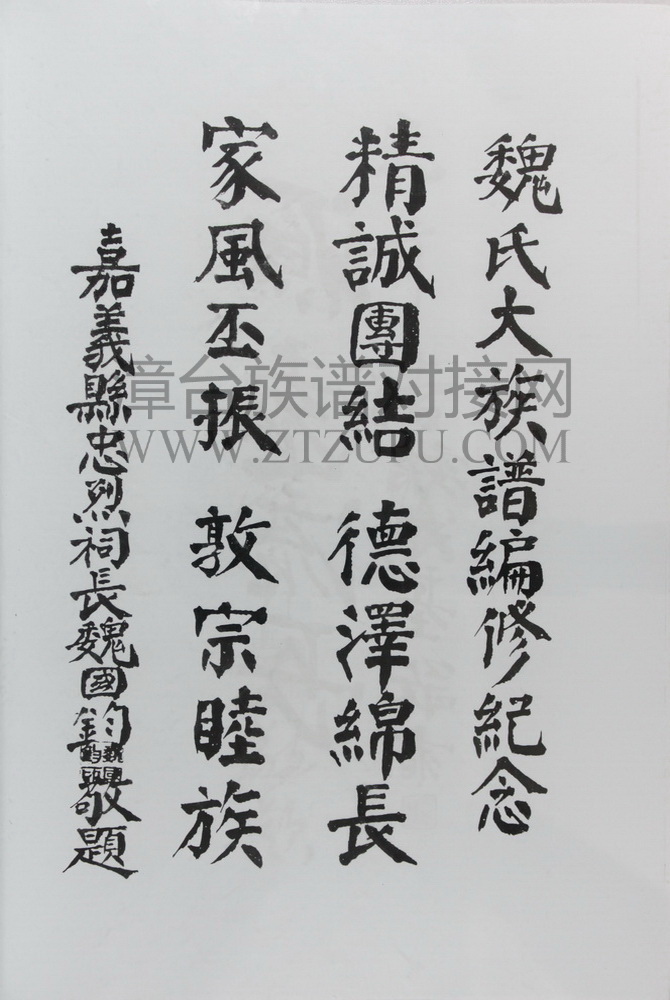 魏氏大族譜編修紀念
精誠團結 德澤綿長
家風丕振 敦宗睦族
嘉義縣忠烈祠長魏國鈞敬題
漳台族谱对接网
WWW.ZTZUPU.COM